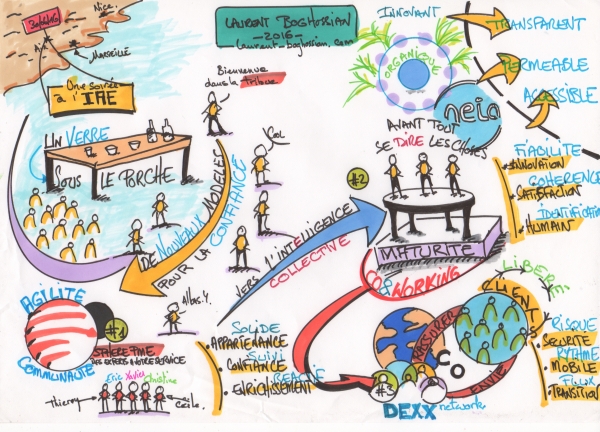 Nice.
MARSEILLE
LAURENT BOGHOSSIAN
- 2016 -
laurent-boghossian.com
INNOVANT
TRANSPARENT
ORGANIQUE
PERMEABLE
ACCESSIBLE
neia
Une soirée
à l'IAE
Bienvenue
dans la Tribue
UN VERRE
SOUS LE PORCHE
DE NOUVEAUX MODELES
POUR LA CONFIANCE
AVANT TOUT
SE DIRE LES CHOSES
#2
FIABILITE
INNOVATION
COHERENCE
SATISFACTION
HUMAIN
MATURITE
VERS L'INTELLIGENCE
COLLECTIVE
COWORKING
AGILITE
COMMUNAUTE
#1
SPHERE PME
DES EXPERTS A VOTRE SERVICE
Eric Xavier Christine
Thierry
Cécile
SOLIDE
APPARTENANCE
SUIVI
CONFIANCE
ENRICHISSEMENT
LIBERM
CLIENTS
RASSURER
CO
ENVIE
#3
DEXX network
RISQUE
SECURITE
RYTHME
MOBILE
FLUX
TRANSITION